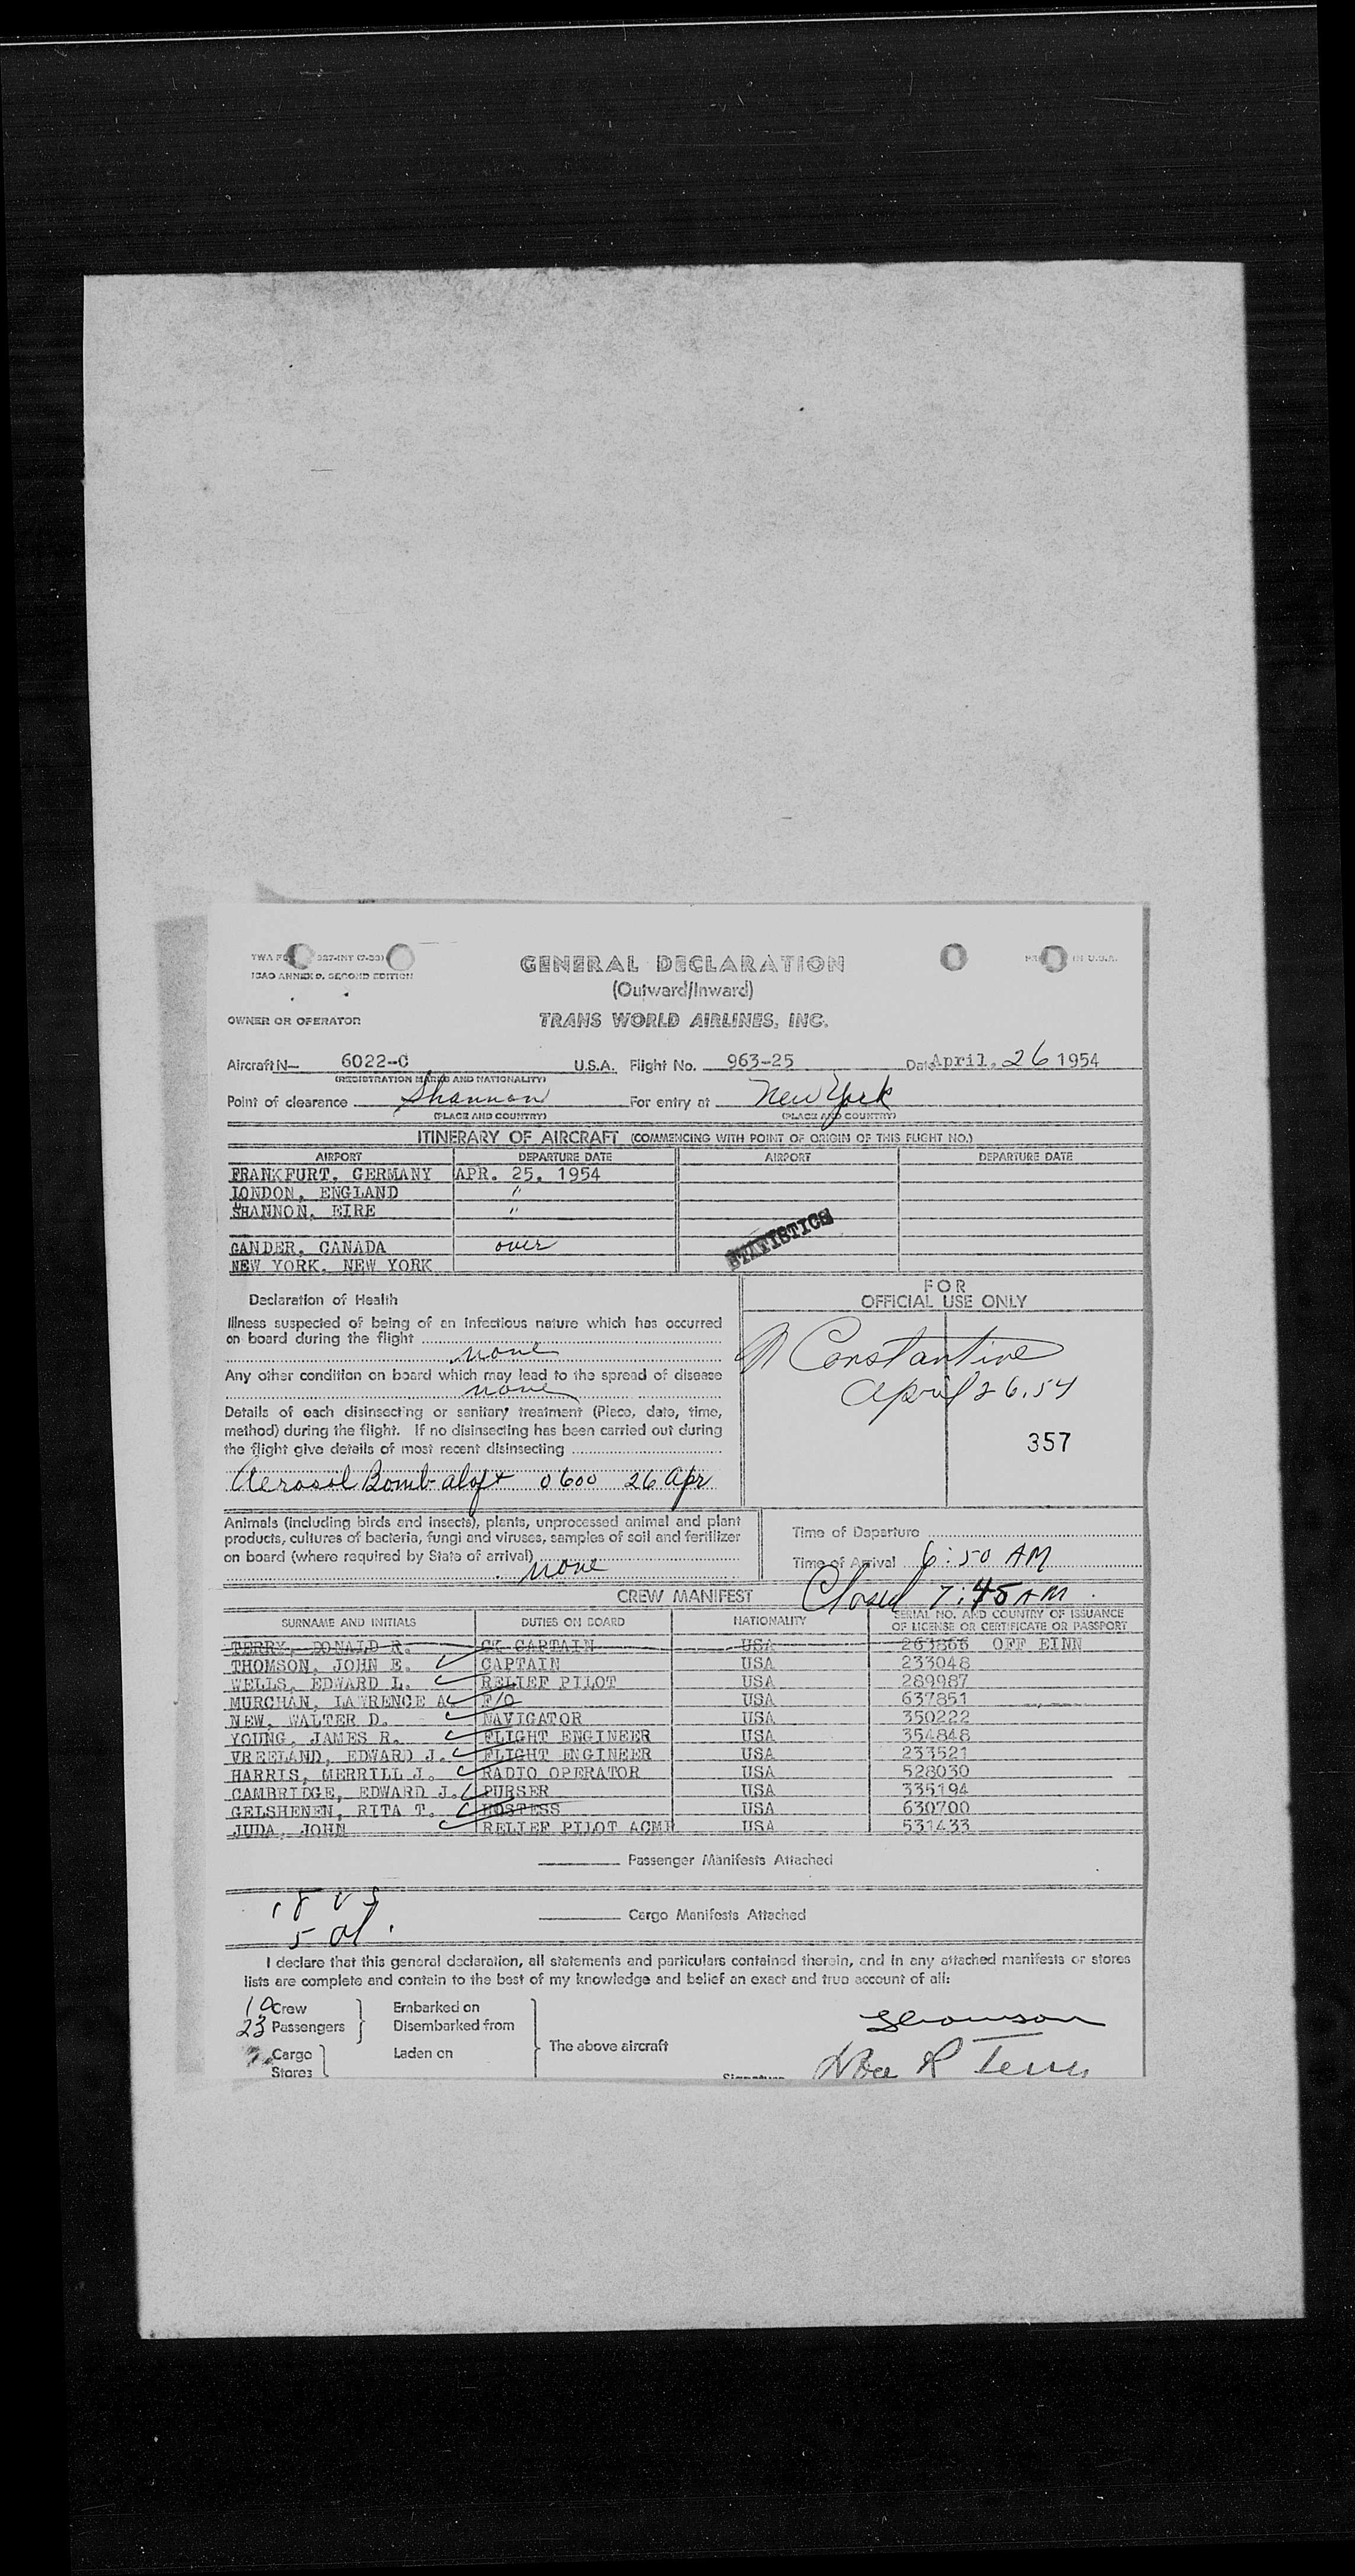 GENERAL DECLARATION
(Outward/Inward)
ICAO ANNEX 9, SECOND EDITION
OWNER OR OPERATOR TRANS WORLD AIRLINES, INC.
Aircraft N— 6022-C U.S.A. Flight No. 963-25 Date April. 26 1954
(REGISTRATION MARKS AND NATIONALITY)
Point of clearance Shannon For entry at New York
(PLACE AND COUNTRY) (PLACE AND COUNTRY)
ITINERARY OF AIRCRAFT (COMMENCING WITH POINT OF ORIGIN OF THIS FLIGHT NO.)
AIRPORT DEPARTURE DATE AIRPORT DEPARTURE DATE
FRANKFURT, GERMANY APR. 25, 1954
LONDON, ENGLAND "
SHANNON, EIRE "
GANDER, CANADA over
NEW YORK, NEW YORK
STATISTICS
Declaration of Health
Illness suspected of being of an infectious nature which has occurred
on board during the flight
none
Any other condition on board which may lead to the spread of disease
none
Details of each disinsecting or sanitary treatment (Place, date, time,
method) during the flight. If no disinsecting has been carried out during
the flight give details of most recent disinsecting
Aerosol Bomb aloft 0600 26 Apr
FOR
OFFICIAL USE ONLY
Constantine
April 26.54
357
Animals (including birds and insects), plants, unprocessed animal and plant
products, cultures of bacteria, fungi and viruses, samples of soil and fertilizer
on board (where required by State of arrival)
none
Time of Departure
Time of Arrival 6:50 AM
Closed 7:45 AM
CREW MANIFEST
SURNAME AND INITIALS DUTIES ON BOARD NATIONALITY SERIAL NO. AND COUNTRY OF ISSUANCE
OF LICENSE OR CERTIFICATE OR PASSPORT
TERRY, DONALD R. CK CAPTAIN USA 263866 OFF EINN
THOMSON, JOHN E. CAPTAIN USA 233048
WELLS, EDWARD L. RELIEF PILOT USA 289987
MURCHAN, LAWRENCE A. F/O USA 637851
NEW, WALTER D. NAVIGATOR USA 350222
YOUNG, JAMES R. FLIGHT ENGINEER USA 354848
VREELAND, EDWARD J. FLIGHT ENGINEER USA 233521
HARRIS, MERRILL J. RADIO OPERATOR USA 528030
CAMBRIDGE, EDWARD J. PURSER USA 335194
GELSHENEN, RITA T. HOSTESS USA 630700
JUDA, JOHN RELIEF PILOT ACMF USA 531433
Passenger Manifests Attached
18 US
5 al.
Cargo Manifests Attached
I declare that this general declaration, all statements and particulars contained therein, and in any attached manifests or stores
lists are complete and contain to the best of my knowledge and belief an exact and true account of all:
10 Crew Embarked on
23 Passengers Disembarked from
Cargo Laden on The above aircraft
Stores
Thomson
Signature R Terry